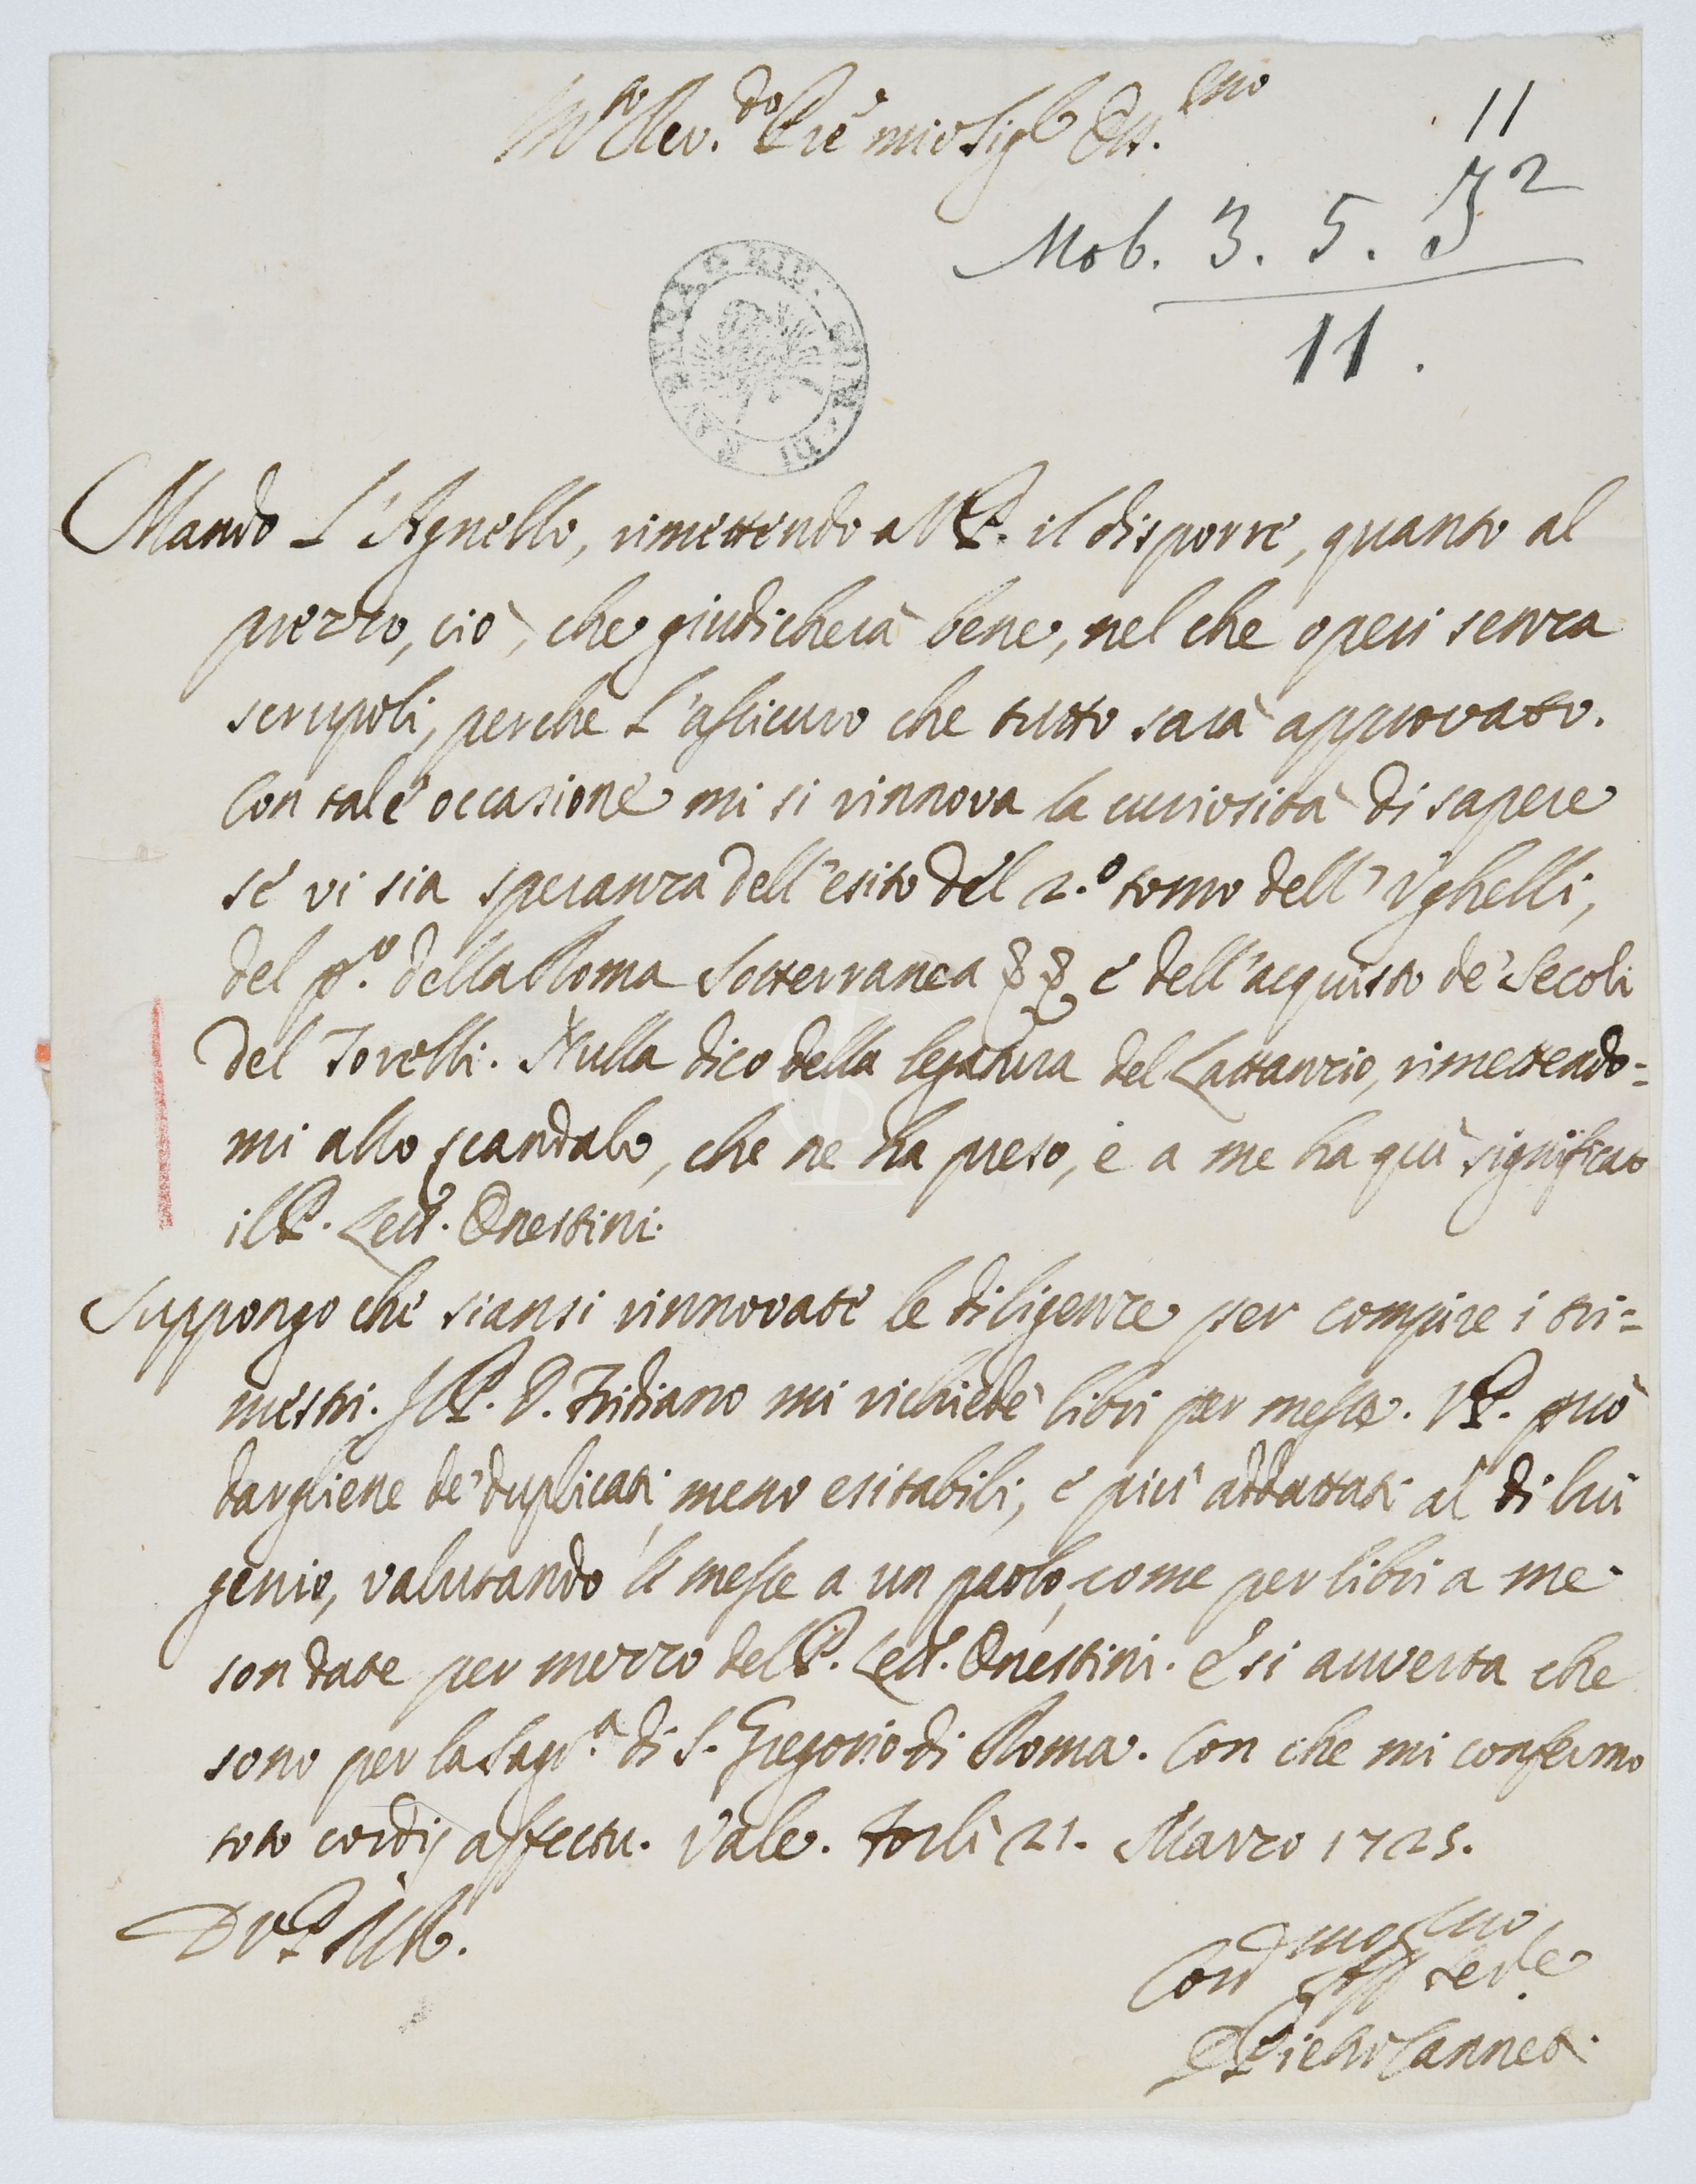 M.to Rev.do Pre mio Sig.r Oss.mo
11
Mob. 3. 5. J2
11.
Mando L'Agnello, rimettendo a V.P. il disporre, quanto al
prezzo, ciò, che giudicherà bene, nel che operi senza
scrupoli, perche L'assicuro che tutto sarà approvato.
Con tale occasione mi si rinnova la curiosità di sapere
se vi sia speranza dell'esito del 2.o tomo dell'Vghelli,
del p.o della Roma Sotterranea && e dell'acquisto de' Secoli
del Torelli. Nulla dico della legatura del Lattanzio, rimettendo=
mi allo scandalo, che ne ha preso, e a me ha quì significato
il P. Lett. Onestini.
Suppongo che siansi rinnovate le diligenze per compire i tri=
mestri. Il P. D. Fridiano mi richiede libri per messe. V.P. può
dargliene de' duplicati meno esitabili, e più addattati al di lui
genio, valutando le messe a un paolo, come per libri a me
son date per mezzo del P. Lett. Onestini. e si auverta che
sono per la Sagr.a di S. Gregorio di Roma. Con che mi confermo
toto cordis affectu. Vale. Forlì 21. Marzo 1725.
D V.P. M.R.
Div.mo Aff.mo Ser.e
D. Pietro Canneti